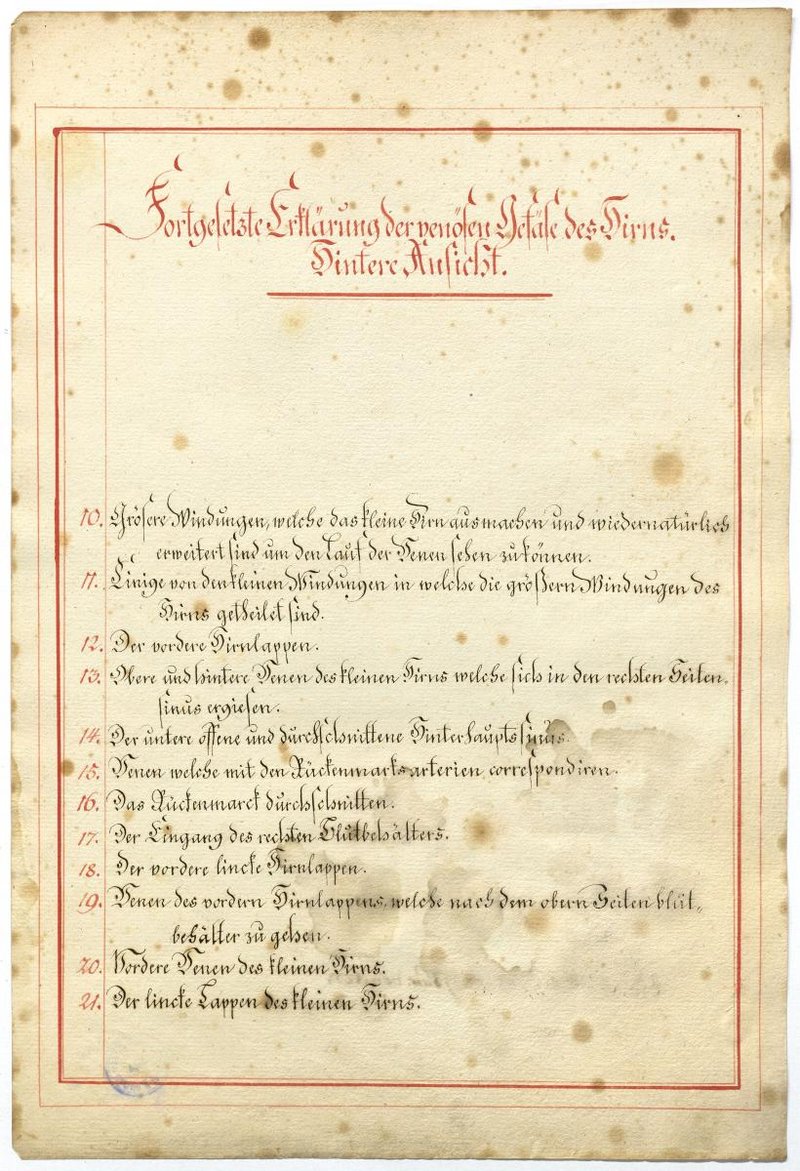 Fortgesetzte Erklärung der venösen Gefäse des Hirns.
Hintere Ansicht.
10. Grösere Windungen, welche das kleine Hirn ausmachen und wiedernatürlich
erweitert sind um den Lauf der Venen sehen zu können.
11. Einige von den kleinen Windungen in welche die größern Windungen des
Hirns getheilet sind.
12. Der vordere Hirnlappen.
13. Obere und hintere Venen des kleinen Hirns welche sich in den rechten Seiten-
sinus ergiesen.
14. Der untere offene und durchschnittene Hinterhauptssinus.
15. Venen welche mit den Rückenmarksarterien correspondiren.
16. Das Rückenmarck durchschnitten.
17. Der Eingang des rechten Blutbehälters.
18. Der vordere lincke Hirnlappen.
19. Venen des vordern Hirnlappens, welche nach dem obern Seiten blut-
behälter zu gehen.
20. Vordere Venen des kleinen Hirns.
21. Der lincke Lappen des kleinen Hirns.